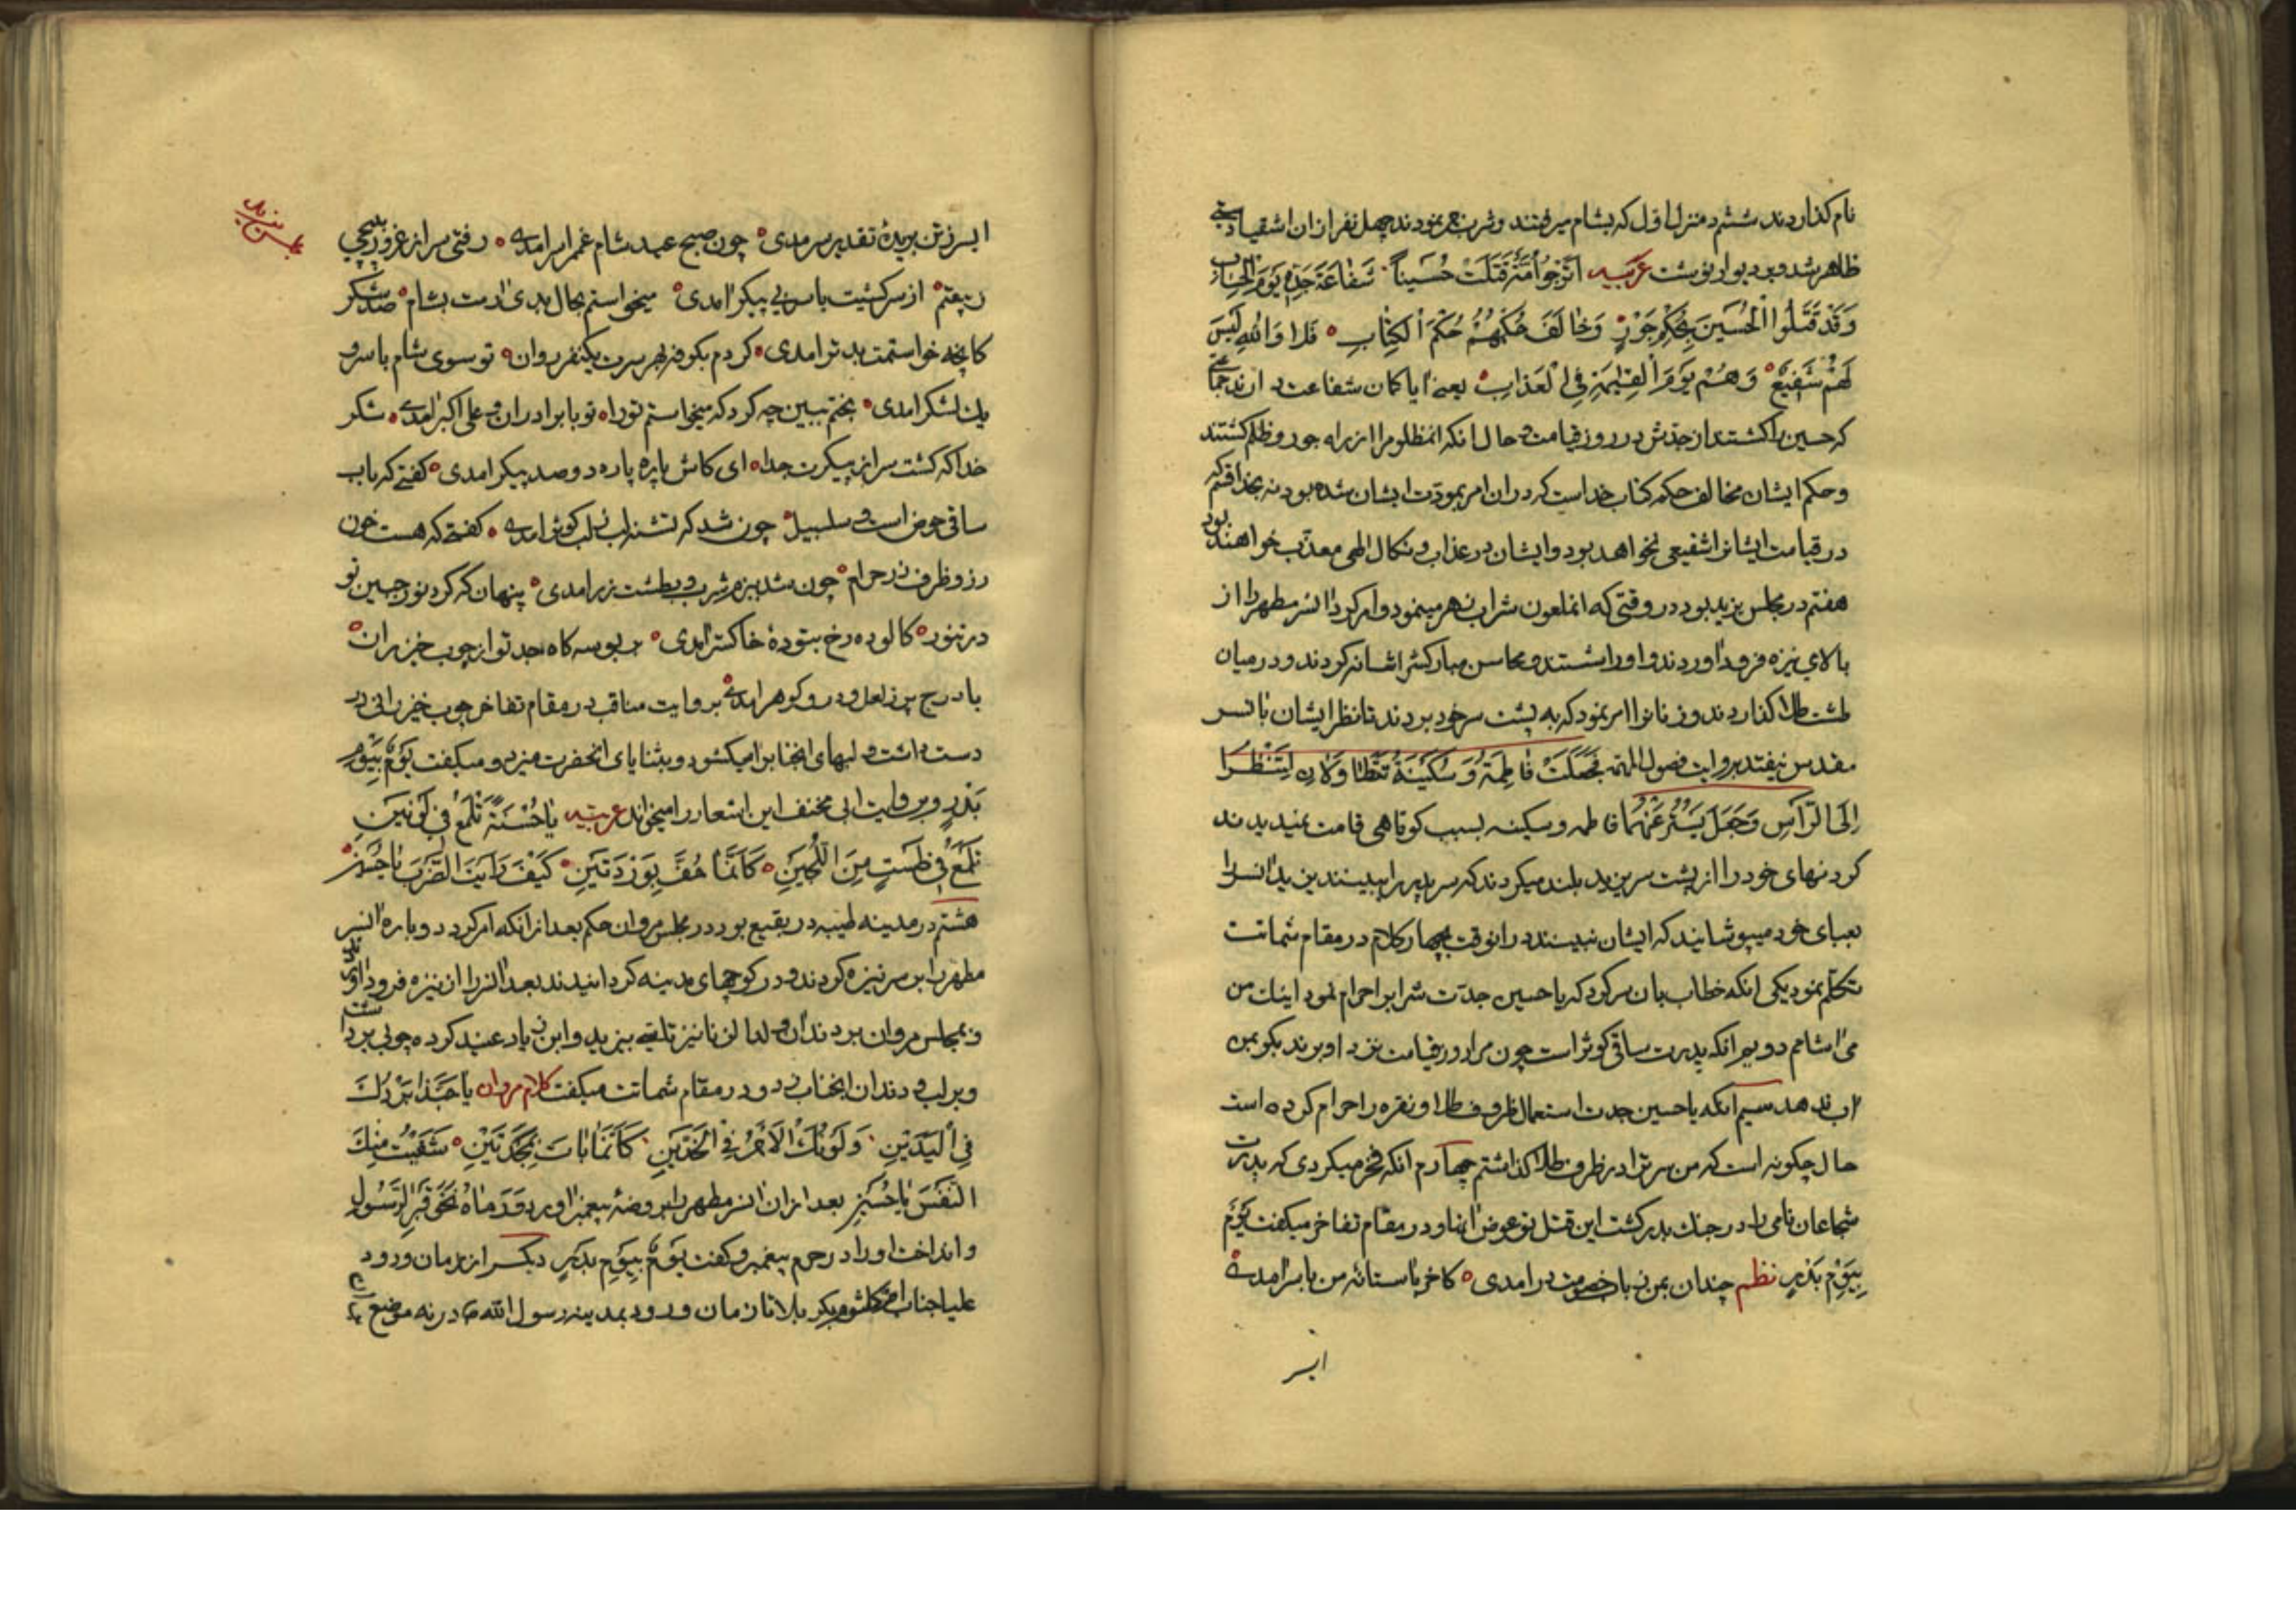 نام کذاردند ششم در منزل اول که بشام میرفتند و شرب خمر نمودند چهل نفر از ان اشقیا دستی
ظاهر شد و بر دیوار نوشت عربیه اترجوا اُمَّةٌ قَتَلَتْ حُسَیناً شَفَاعَةَ جَدِّهِ یَومَ الحِسَابِ
وَقَدْ قَتَلُوا الْحُسَینَ بِحُکمِ جَوْرٍ وَخَالَفَ حُکمُهُمُ حُکمَ الکِتَابِ فَلا وَاللهِ لَیسَ
لَهُمْ شَفِیعٌ وَهُم یَومَ القِیٰمَةِ فِی الْعَذَابِ یعنی ایا کمان شفاعت دارند جماعتی
که حسین را کشتند از جدش در روز قیامت و حال انکه انمظلوم را از راه جور و ظلم کشتند
و حکم ایشان مخالف حکم کتاب خداست که در ان امر بمودت ایشان شده بود نه بخدا قسم که
در قیامت ایشانرا شفیعی نخواهد بود و ایشان در عذاب و نکال الهی معذب خواهند بود
هفتم در مجلس یزید بود در وقتی که انملعون شراب زهر مار مینمود و امر کرد انسر مطهر را از
بالای نیزه فرود اوردند و اورا شستند و محاسن مبارکش را شانه کردند و در میان
طشت طلا کذاردند و زنانرا امر نمود که به پشت سر خود بردند تا نظر ایشان بانسر
مقدس نیفتد بروایت فصول المهمه فَجَعَلَتْ فَاطِمَةُ وَ سُکَینَةُ تَتَطَاوَلانِ لِتَنْظُرَا
اِلَی الرَّاسِ وَجَعَلَ یَسْتُرُ عَنْهُمَا فاطمه و سکینه بسبب کوتاهی قامت نمیدیدند
کردنهای خود را از پشت سر یزید بلند میکردند که سر پدر را ببینند یزید انسر را
بعبای خود میپوشانید که ایشان نبینند در انوقت بچهار کلام در مقام شماتت
تکلم نمود یکی انکه خطاب بان سر کرد که یا حسین جدت شراب را حرام نمود اینک من
می اشامم دویم انکه پدرت ساقی کوثر است چون مرا در قیامت نزد او برند بکو بمن
اب ندهد سیم انکه یا حسین جدت استعمال ظروف طلا و نقره را حرام کرده است
حال چکونه است که من سر ترا در ظرف طلا کذاشتم چهارم انکه فخر میکردی که پدرت
شجاعان نامی را در جنک بدر کشت این قتل تو عوض انها و در مقام تفاخر میکفت یَومٌ
بِیَوْمِ بَدْرٍ نظم چندان بمن زباد خصومت در امدی کاخر باستانه من با سر امدی
ابسر
ابسر ز تن بریدهٔ تقدیر سرمدی چون صبح عید شام غمم را برامدی رفتی سر از غرور
از سرکشیت با سر بی پیکر امدی میخواستم بحال بدی ارمت بشام صد شکر
کانچه خواستمت بدتر امدی کردم بکوفه بهر سرت یکنفر روان تو سوی شام با سر و
یک لشکر امدی بختم ببین چه کرد که میخواستم تو را تو با برادران و علی اکبر امدی شکر
خدا که کشت سر از پیکرت جدا ای کاش پاره پاره دو صد پیکر امدی کفتی که باب
ساقی حوض است و سلسبیل چون شد که تشنه لب بلب کوثر امدی کفتی که هست خون
رز و ظرف زر حرام چون شد ببزم شرب و بطشت زر امدی پنهان که کرد نور جبین تو
در تنور کالوده رخ بتودهٔ خاکستر امدی بوسه کاه جد تو از چوب خیزران
با درج پر ز لعل و در و کوهر امدی بروایت مناقب در مقام تفاخر چوب خیزرانی در
دست داشت و لبهای انجنابرا میکشود و بثنایای انحضرت میزد و میکفت یَومٌ بِیَوْمِ
بَدْرٍ و بروایت ابی مخنف این اشعار را میخواند عربیه یَا حُسْنَهُ تَلْمَعُ فی
تَلْمَعُ فی طَسْتٍ مِنَ اللُّجَینِ کَاَنَّمَا حُفَّ بِوَرْدَتَینِ کَیْفَ رَاَیْتَ الضَّرْبَ یَا حُسَیْنُ
هشتم در مدینه طیبه در بقیع بود در مجلس مروان حکم بعد از انکه امر کرد دوباره انسر
مطهر را بر سر نیزه کردند و در کوچهای مدینه کردانیدند بعد انسر را از نیزه فرود اوردند
و بمجلس مروان بردند ان ولد الزنا نیز تاسی بیزید و ابن زیاد عنید کرده چوبی برداشت
و بر لب و دندان انجناب زد و در مقام شماتت میکفت کلام مروان یَا حَبَّذَا بَرْدُکَ
فِی الْیَدَیْنِ وَلَوْنُکَ الاَحْمَرُ فِی الخَدَّیْنِ کَاَنَّمَا بَاتَ بِمَجْسَدَیْنِ شَفَیْتُ مِنْکَ
النَّفْسَ یَا حُسَیْنُ بعد از ان انسر مطهر را بروضهٔ پیغمبر اورد وَرَمَاهُ نَحْوَ قَبْرِ الرَّسُولِ
و انداخت اورا در حرم پیغمبر و کفت یَومٌ بِیَومِ بَدْرٍ دیکر از زمان ورود
علیا جناب ام کلثوم بکربلا تا زمان ورود بمدینه رسول الله ص در نه موضع